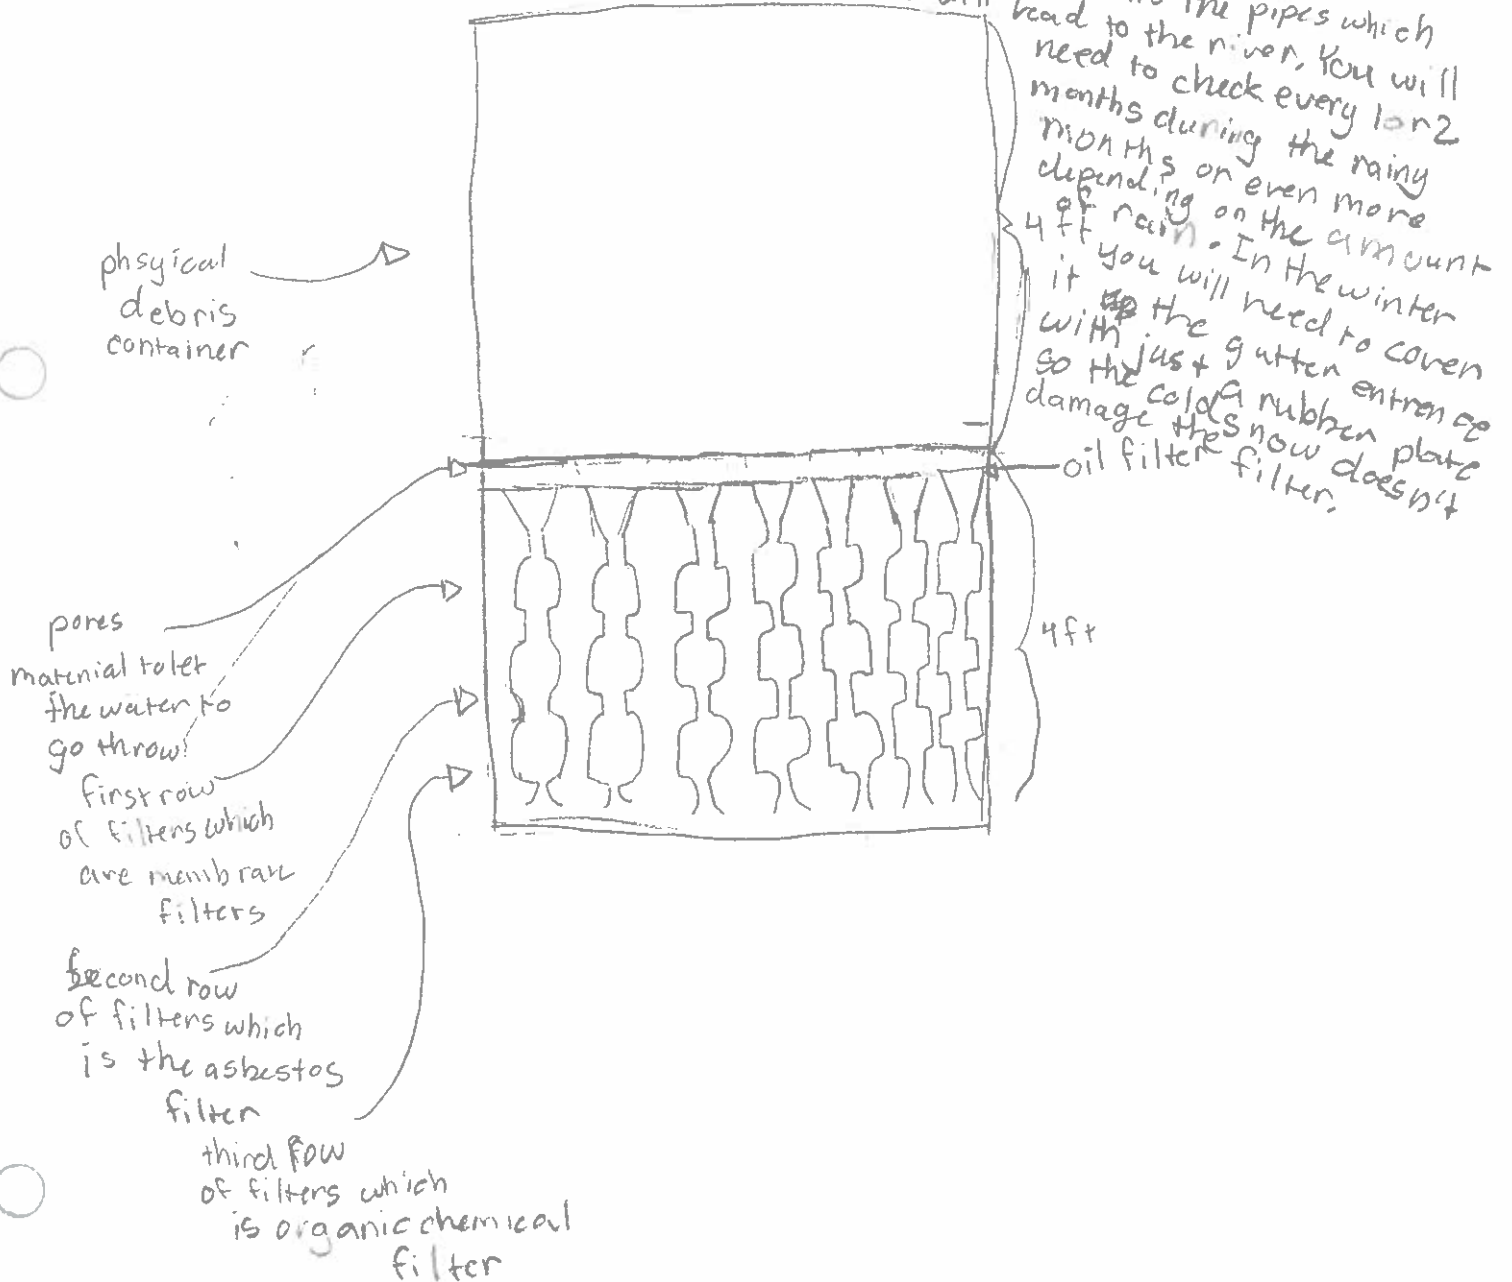 the pipes which
lead to the river. You will
need to check every 1 or 2
months during the rainy
months or even more
depending on the amount
of rain. In the winter
you will need to cover
it the gutter entrence
with just a rubber plate
so the cold snow doesn't
damage the filter.
4 ft
oil filter
4ft
phsyical
debris
container
pores
material to let
the water to
go throw
first row
of filters which
are membrane
filters
second row
of filters which
is the asbestos
filter
third row
of filters which
is organic chemical
filter